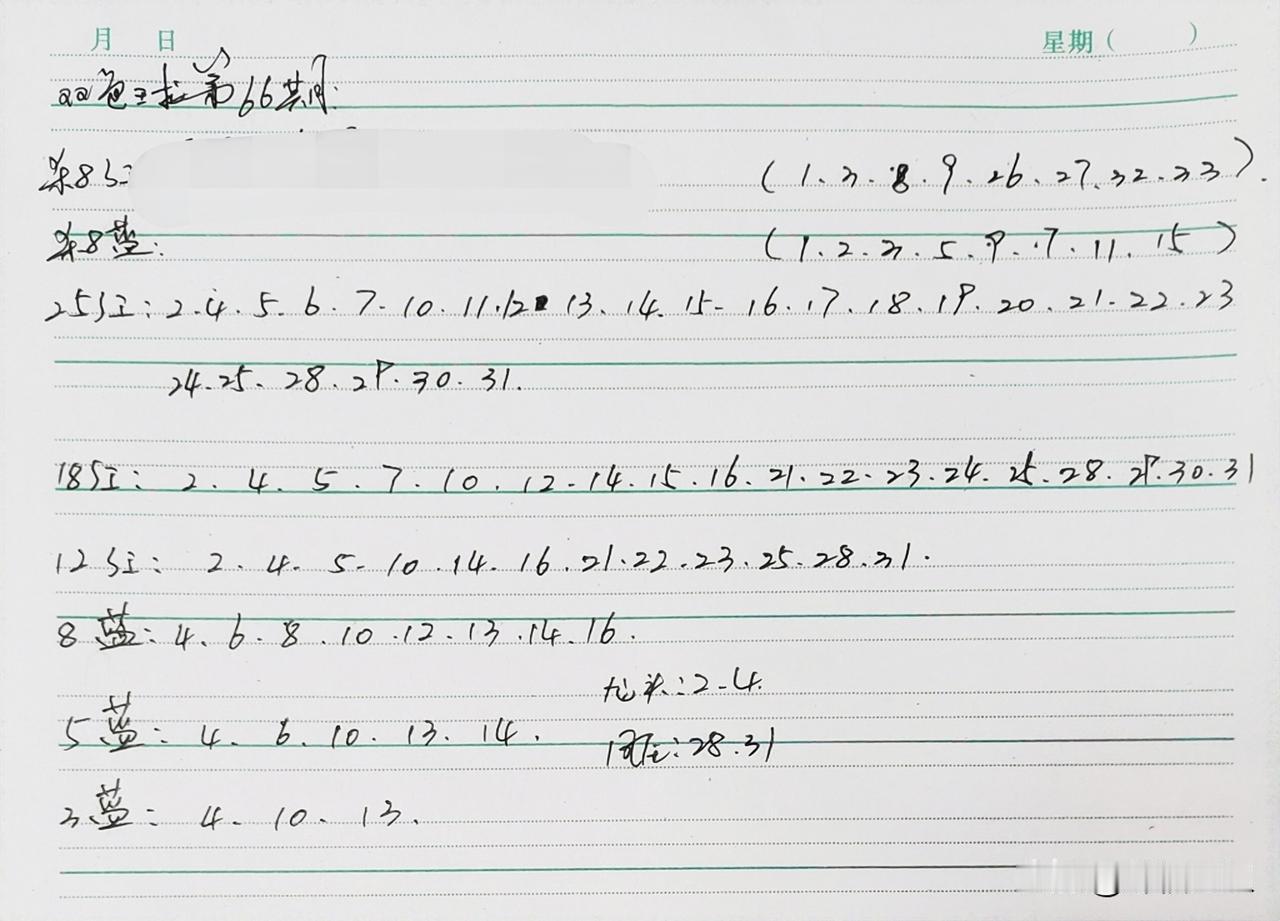 月 日 星期( )
双色球第66期:
杀8红 (1.3.8.9.26.27.32.33).
杀8蓝: (1.2.3.5.9.7.11.15)
25红:2.4.5.6.7.10.11.12.13.14.15.16.17.18.19.20.21.22.23
24.25.28.29.30.31.
18红:2.4.5.7.10.12.14.15.16.21.22.23.24.25.28.29.30.31
12红:2.4.5.10.14.16.21.22.23.25.28.31.
8蓝:4.6.8.10.12.13.14.16.
龙头:2.4.
5蓝:4.6.10.13.14.
凤尾:28.31
3蓝:4.10.13.